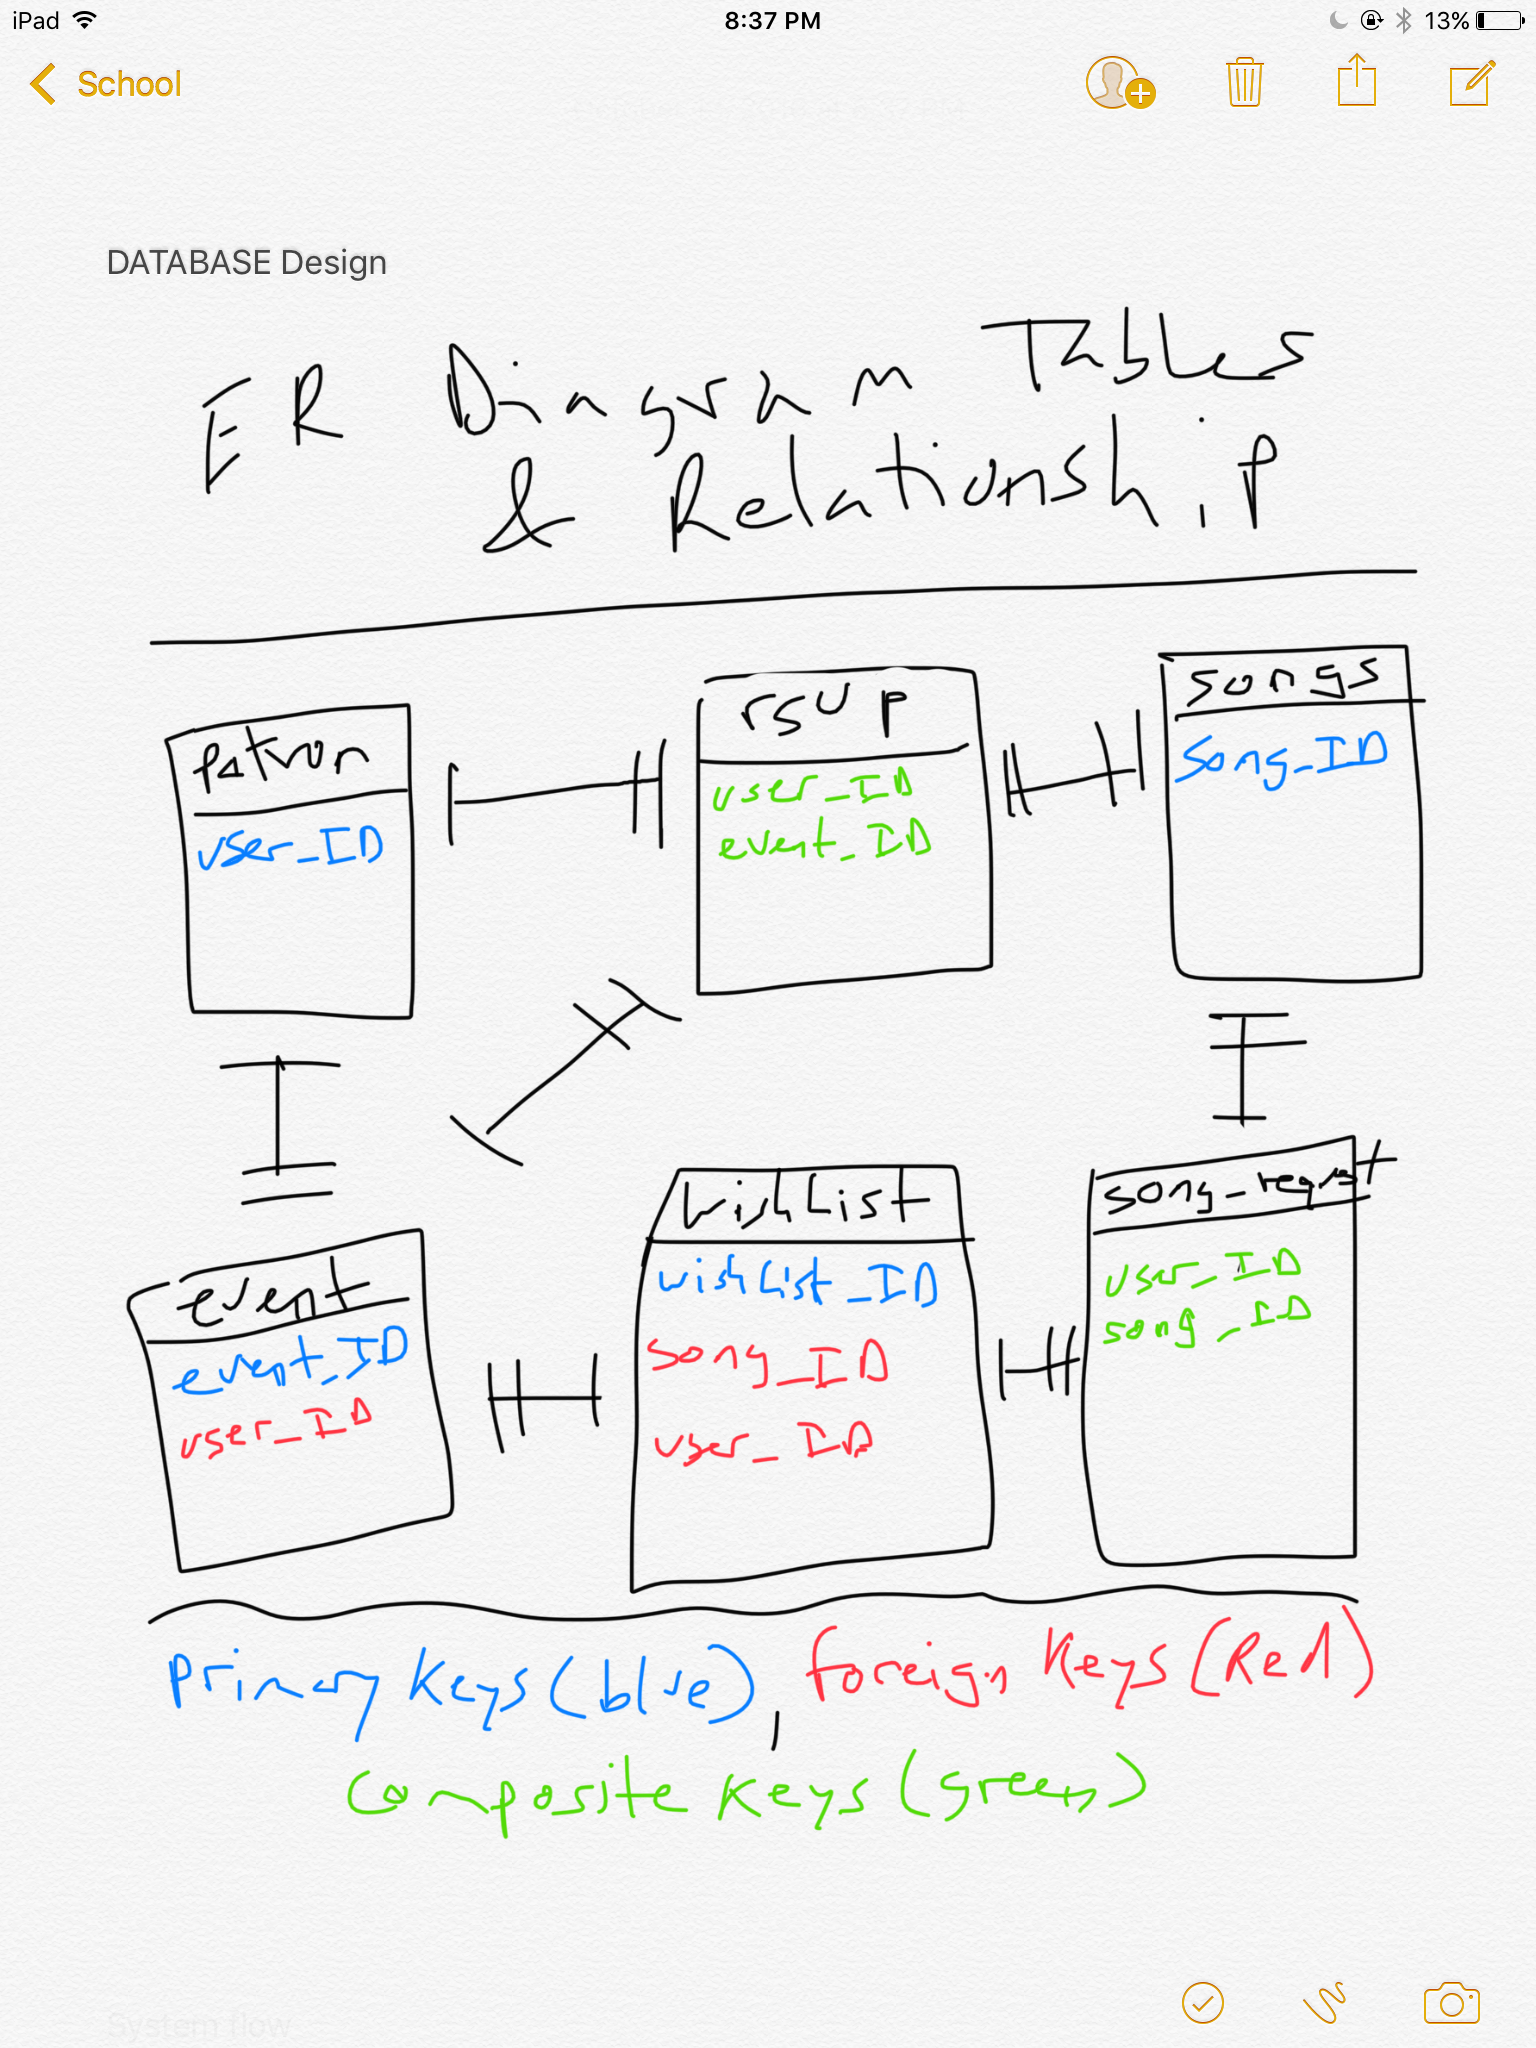 iPad
8:37 PM
13%
School
DATABASE Design
ER Diagram Tables
& Relationship
patron
user_ID
rsvp
user_ID
event_ID
songs
song_ID
event
event_ID
user_ID
wishlist
wishlist_ID
song_ID
user_ID
song_request
user_ID
song_ID
Primary Keys (blue), foreign Keys (Red)
Composite Keys (green)
System flow